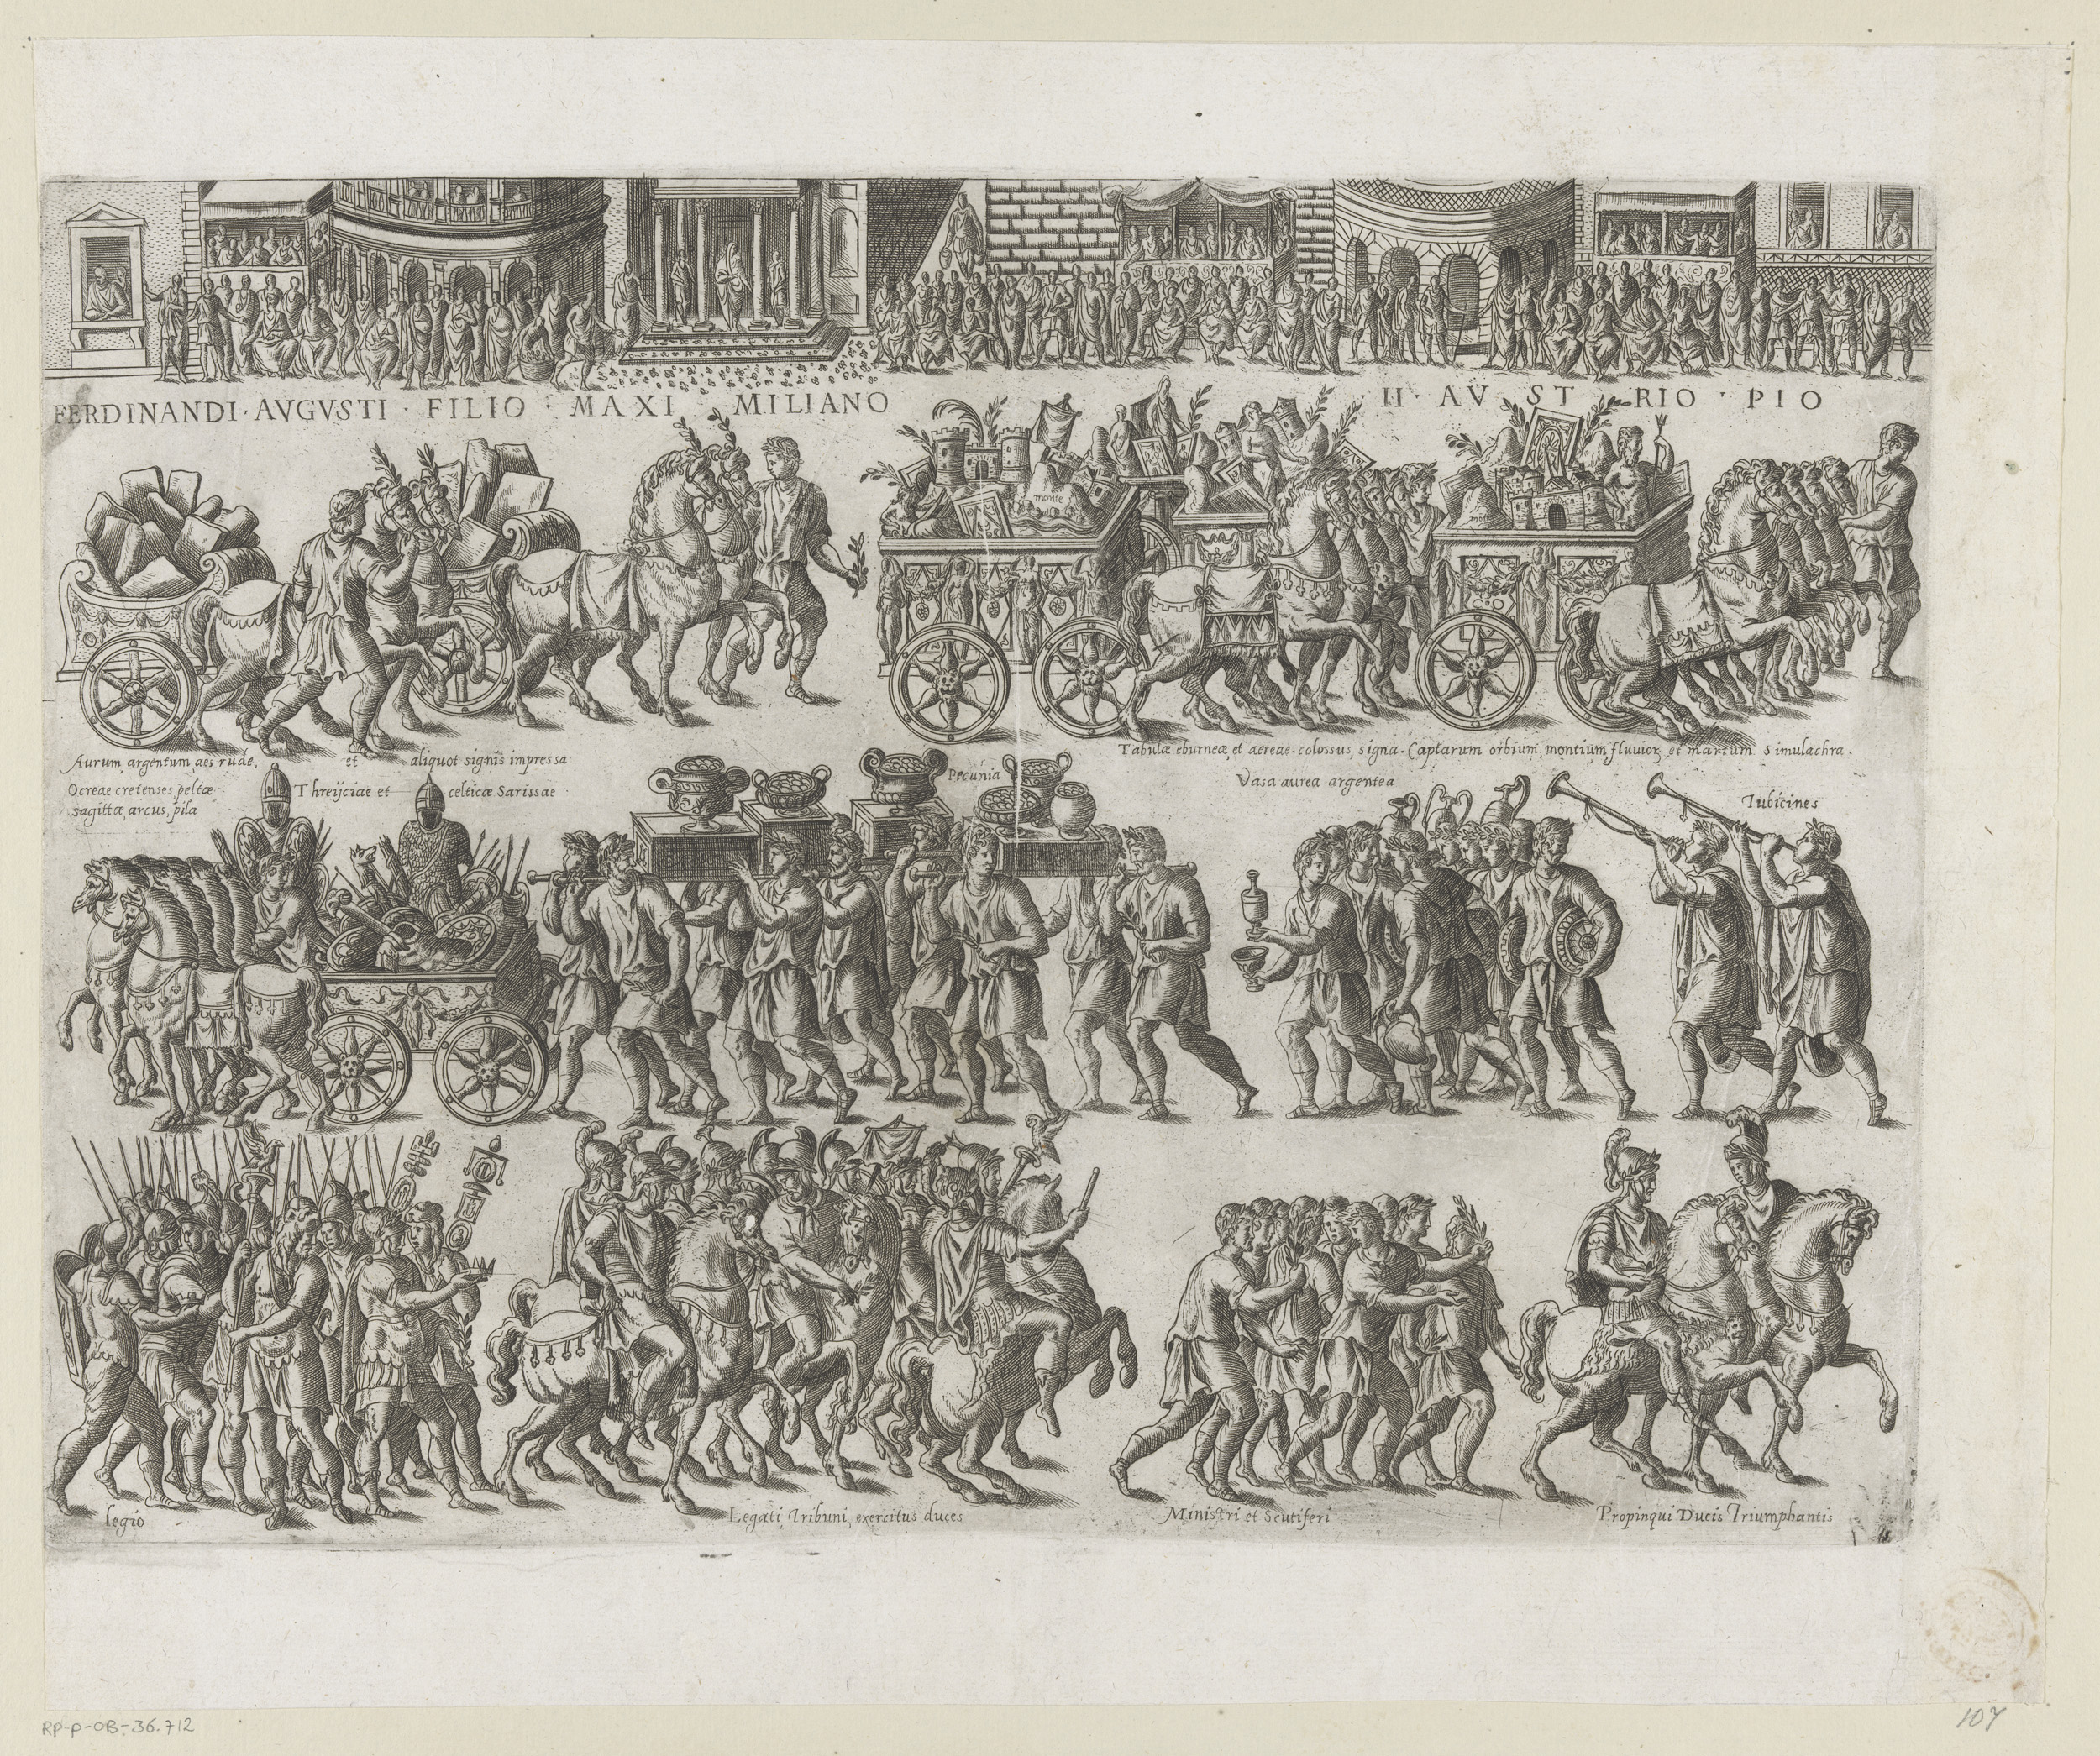 FERDINANDI · AVGVSTI · FILIO · MAXI MILIANO II · AV ST RIO · PIO
monte
Aurum, argentum, aes rude, et aliquot signis impressa
Tabulæ eburneæ, et aereae. colossus, signa. Captarum orbium, montium, fluvior, et martum simulachra.
Ocreae cretenses, peltæ
sagittæ, arcus, pila
Threijciae et celticæ Sarissae
Pecunia
Vasa aurea argentea
Tubicines
legio
Legati, Tribuni, exercitus duces
Ministri et Scutiferi
Propinqui Ducis Triumphantis
RP-P-OB-36.712
107